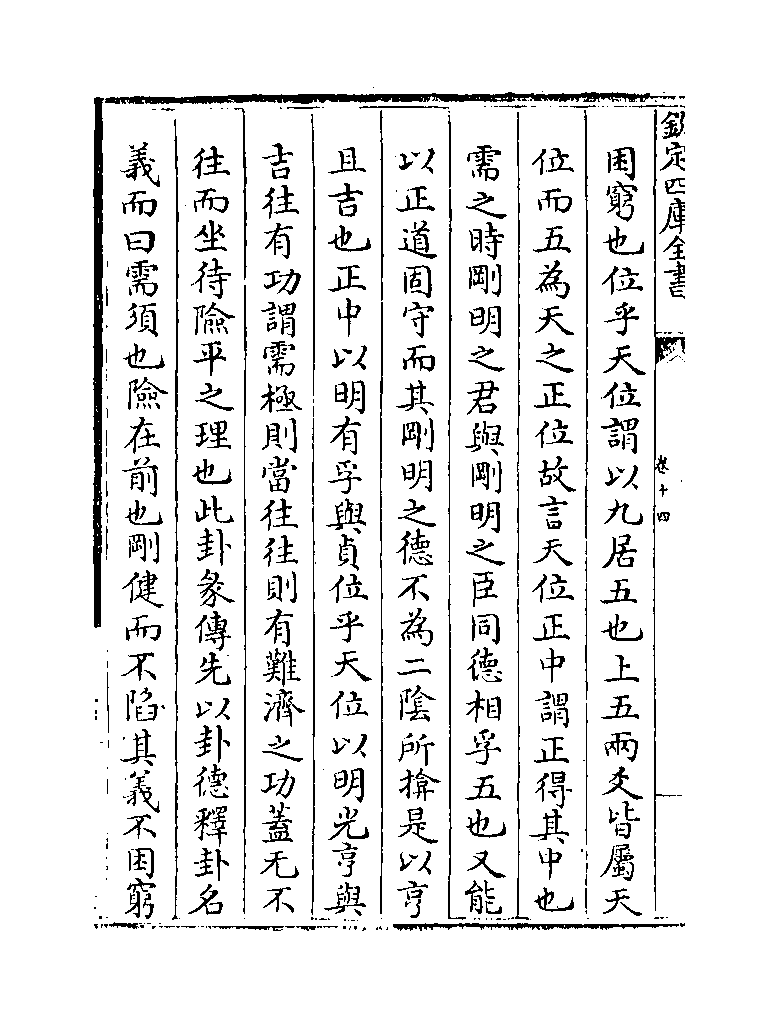 欽定四庫全書
卷十四
困窮也位乎天位謂以九居五也上五兩爻皆屬天
位而五為天之正位故言天位正中謂正得其中也
需之時剛明之君與剛明之臣同德相孚五也又能
以正道固守而其剛明之德不為二陰所揜是以亨
且吉也正中以明有孚與貞位乎天位以明光亨與
吉往有功謂需極則當往往則有難濟之功蓋无不
往而坐待險平之理也此卦彖傳先以卦德釋卦名
義而曰需須也險在前也剛健而不陷其義不困窮